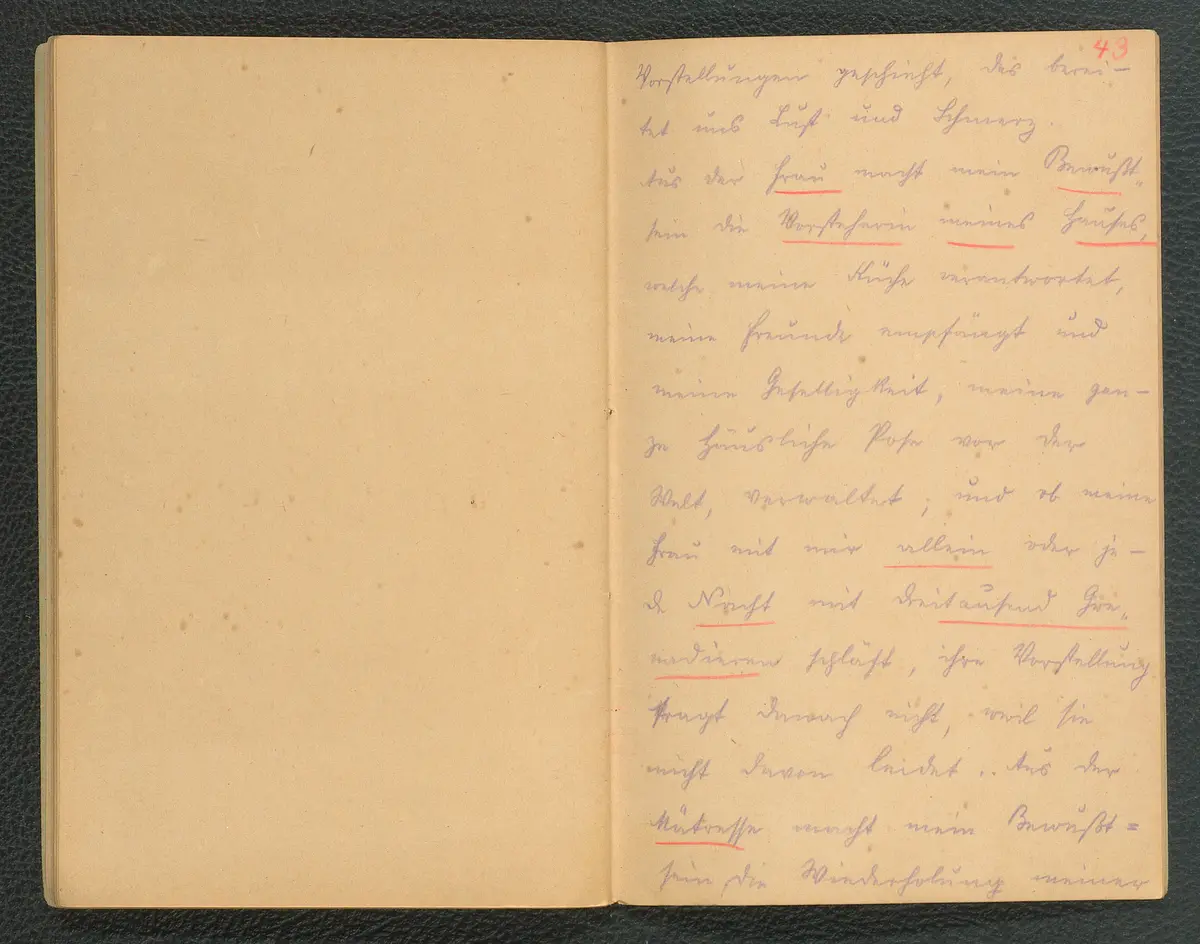 43
Vorstellungen geschieht, das berei-
tet uns Lust und Schmerz.
Aus der Frau macht mein Bewußt„
sein die Vorsteherin meines Hauses,
welche meine Küche verantwortet,
meine Freunde empfängt und
meine Geselligkeit, meine gan-
ze häusliche Pose vor der
Welt, verwaltet; und ob meine
Frau mit mir allein oder je-
de Nacht mit dreitausend Gre„
nadieren schläft, ihre Vorstellung
fragt danach nicht, weil sie
nicht davon leidet.. Aus der
Mätresse macht mein Bewußt=
sein die Wiederholung meiner